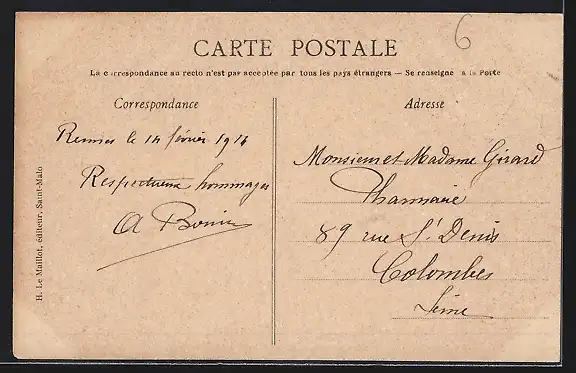 6
CARTE POSTALE
La correspondance au recto n'est pas acceptée par tous les pays étrangers — Se renseigne à la Poste
Correspondance
Adresse
Rennes le 14 février 1914
Respectueux hommages
A
Monsieur et Madame Girard
Pharmacie
89 rue St Denis
Colombes
Seine
H. Le Maillot, éditeur, Saint-Malo